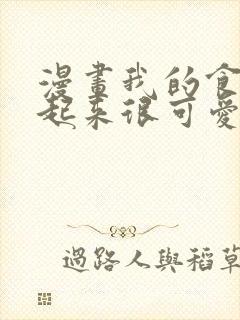 漫畫我的食
起來很可愛
過路人與稻草